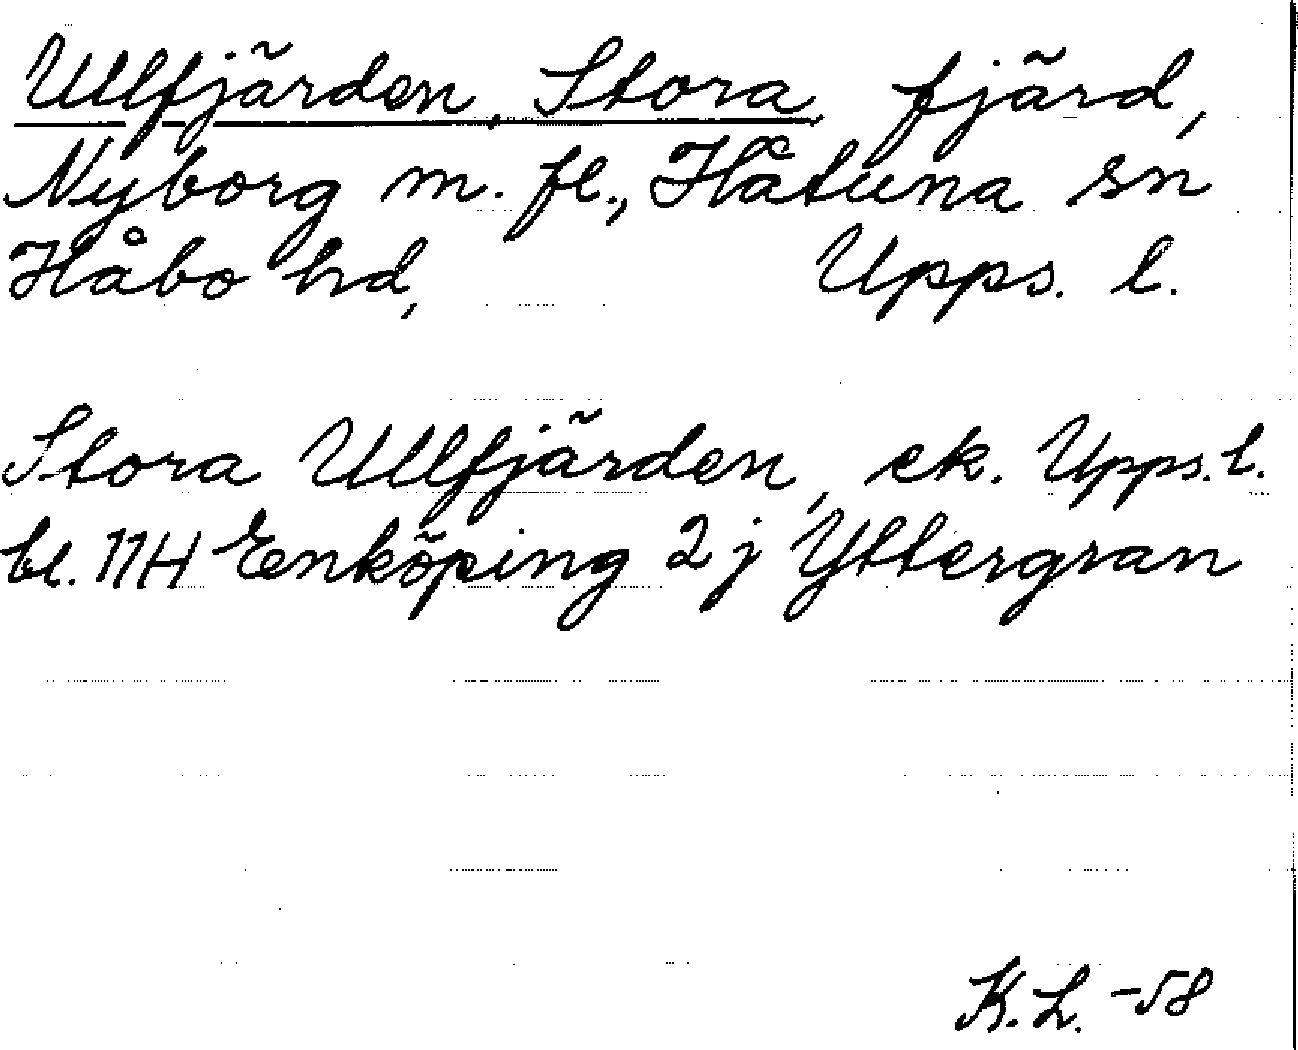 Ullfjärden, Stora fjärd,
Nyborg m. fl., Håtuna sn
Håbo hd, Upps. l.
Stora Ullfjärden, ek. Upps. l.
bl. 11H Enköping 2 j Yttergran
K. L. -58